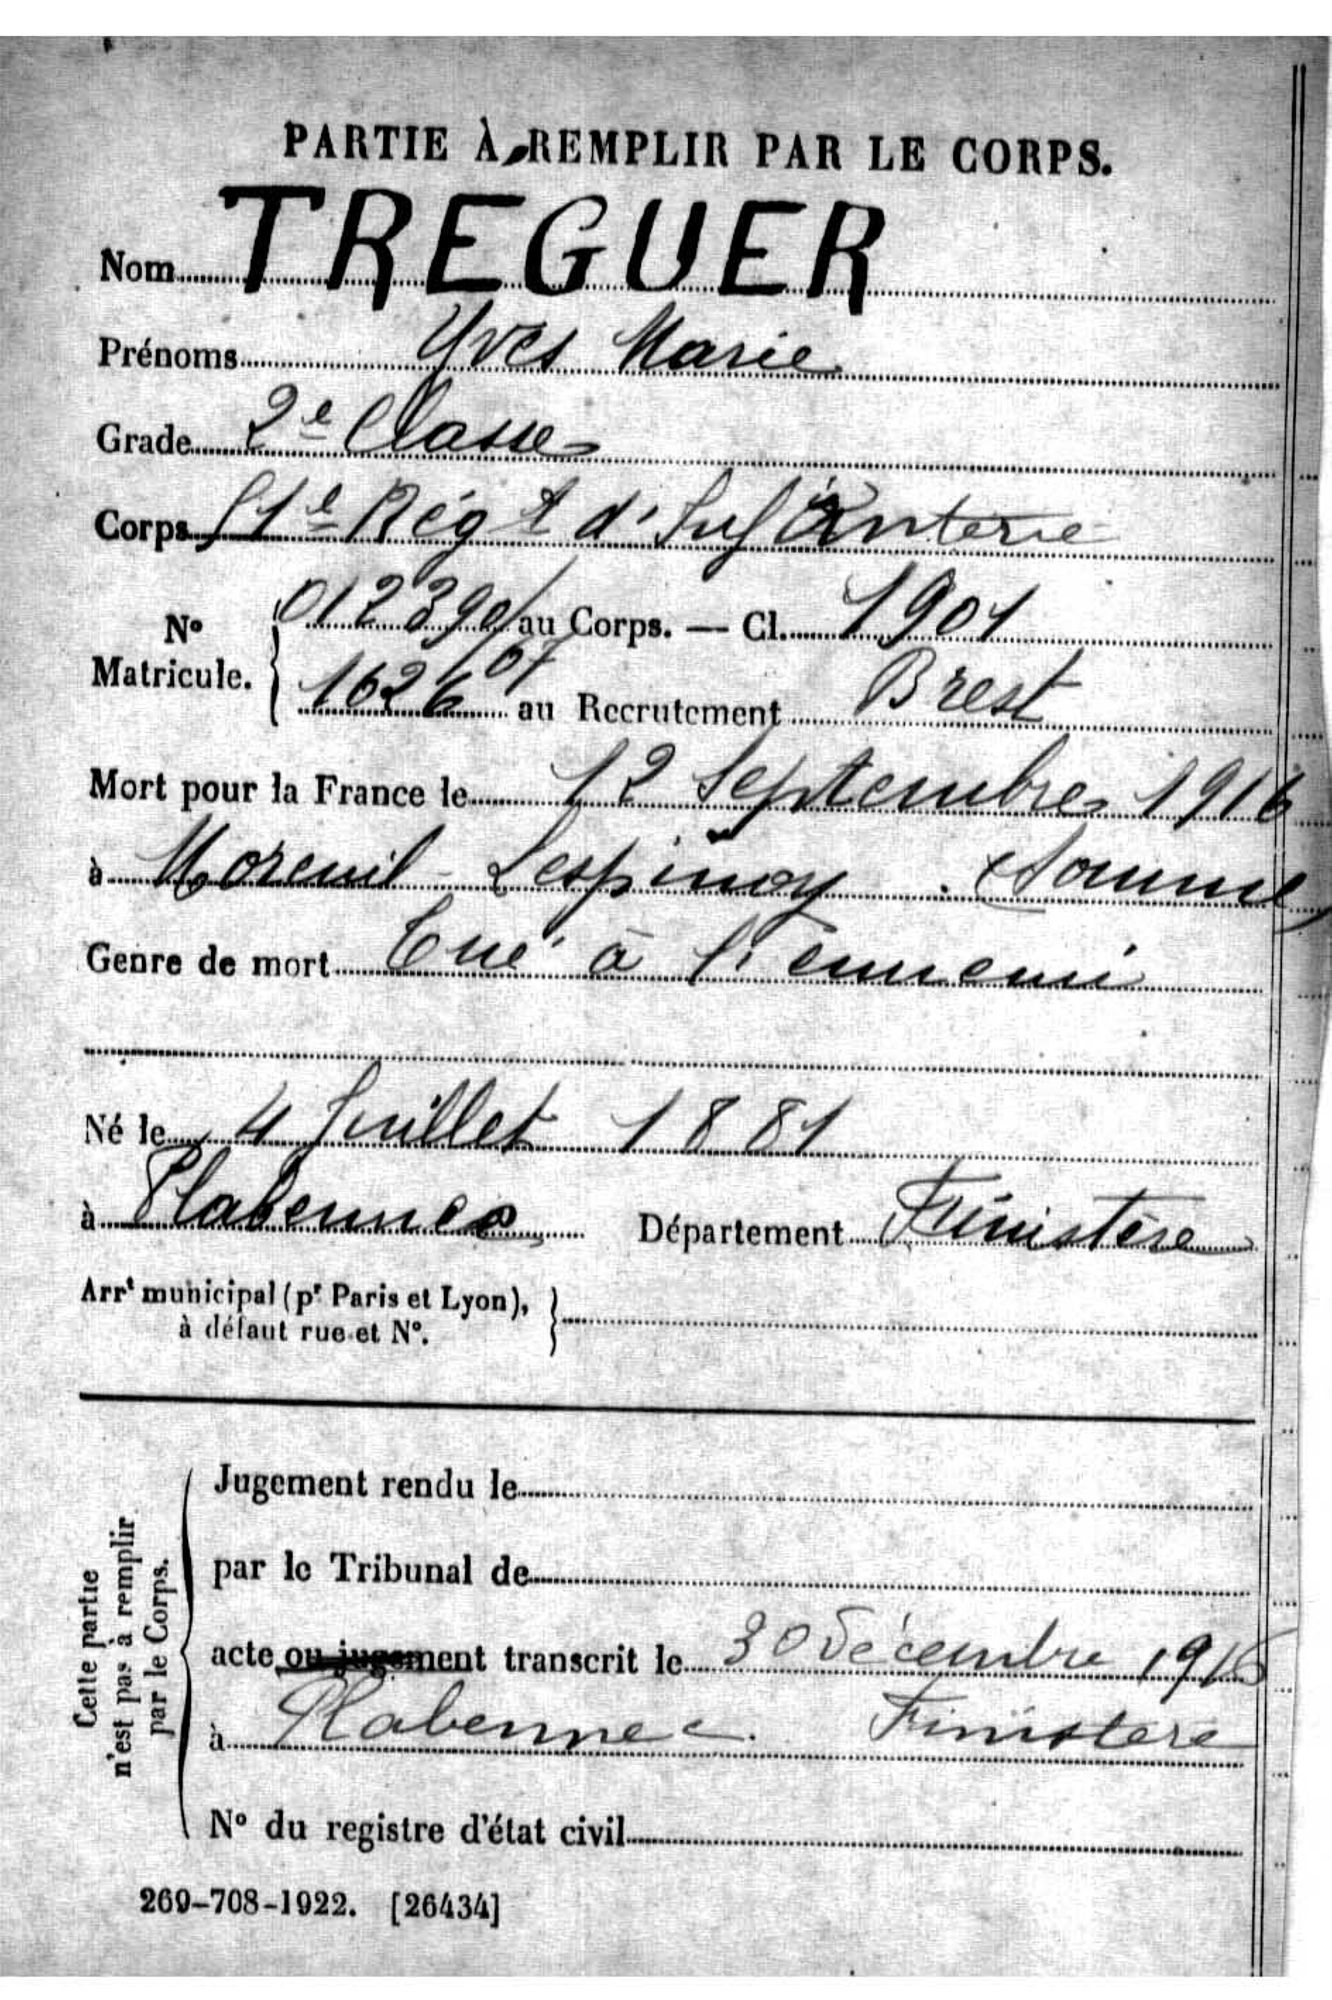 PARTIE À REMPLIR PAR LE CORPS.
Nom TREGUER
Prénoms Yves Marie
Grade 2e Classe
Corps 51e Régt d'Infanterie
No Matricule. 012390/ au Corps. — Cl. 1901
1626/07 au Recrutement Brest
Mort pour la France le 12 Septembre 1916
à Moreuil - Lespinoy . (Somme)
Genre de mort Tué à l'ennemi
Né le 4 Juillet 1881
à Plabennec Département Finistère
Arrt municipal (pr Paris et Lyon),
à défaut rue et No.
Cette partie
n'est pas à remplir
par le Corps.
Jugement rendu le
par le Tribunal de
acte ou jugement transcrit le 30 Décembre 1916
à Plabennec. Finistere
No du registre d'état civil
269-708-1922. [26434]